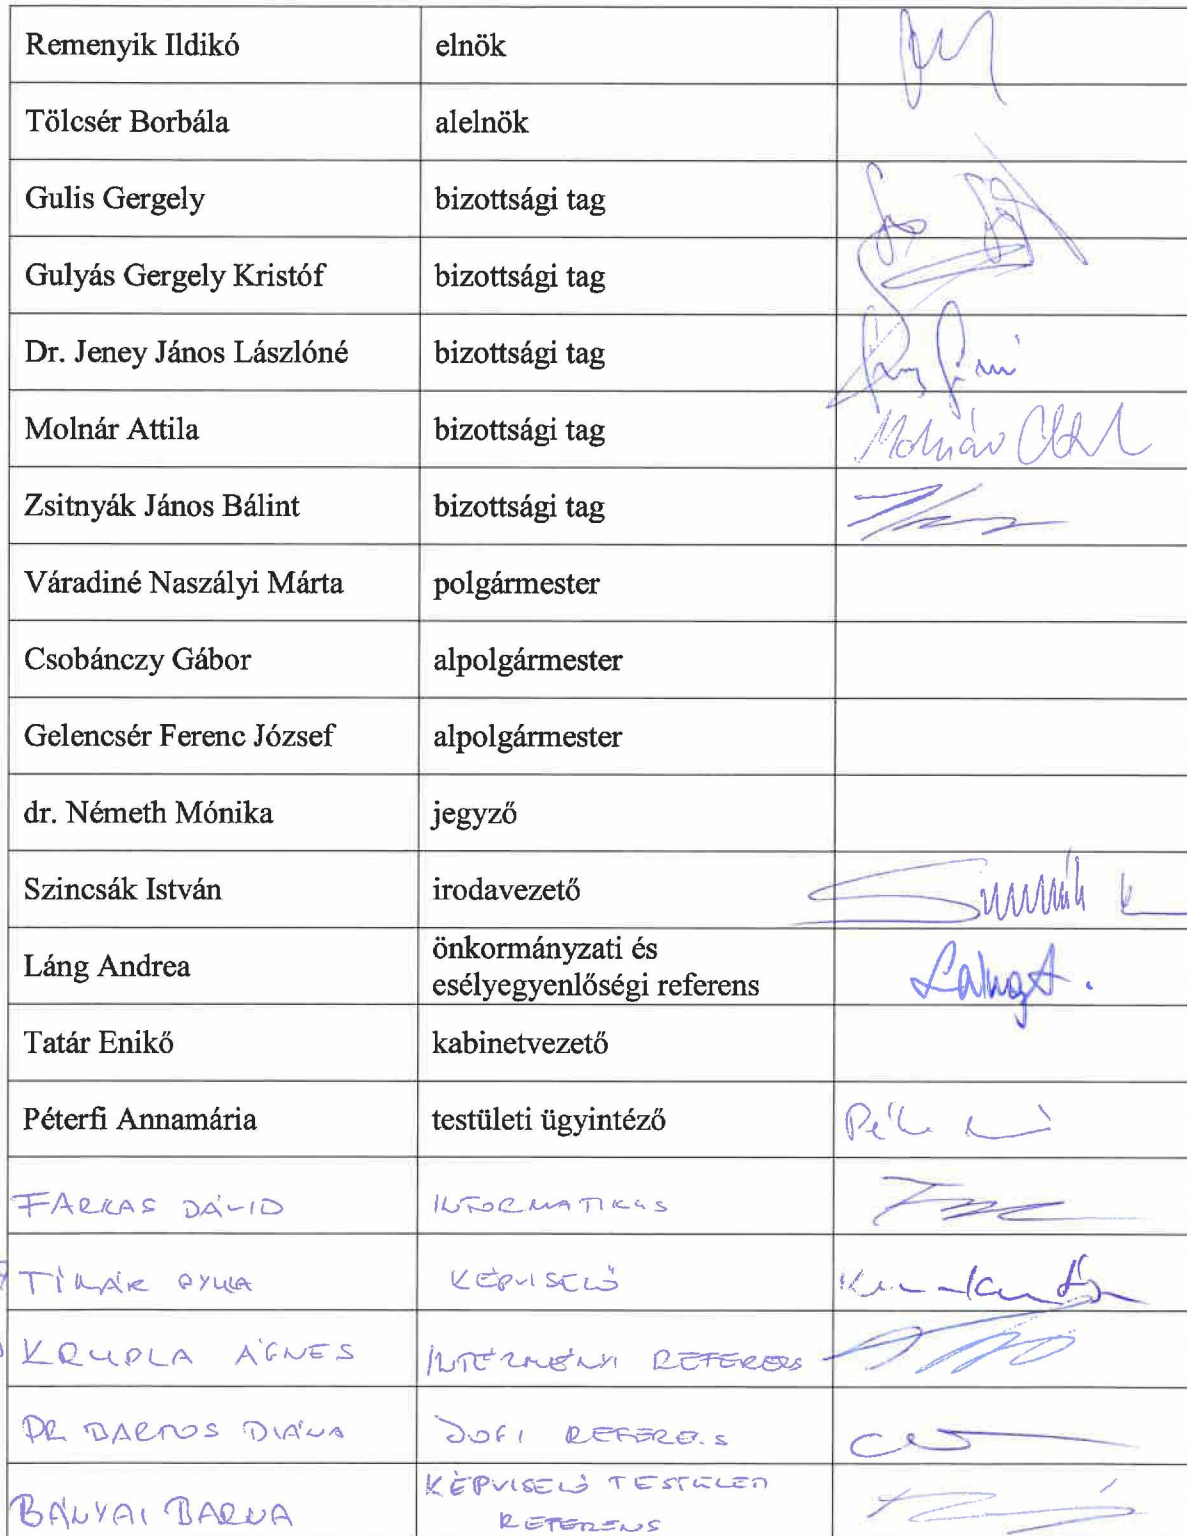 Remenyik Ildikó elnök
Tölcsér Borbála alelnök
Gulis Gergely bizottsági tag
Gulyás Gergely Kristóf bizottsági tag
Dr. Jeney János Lászlóné bizottsági tag
Molnár Attila bizottsági tag Molnár
Zsitnyák János Bálint bizottsági tag
Váradiné Naszályi Márta polgármester
Csobánczy Gábor alpolgármester
Gelencsér Ferenc József alpolgármester
dr. Németh Mónika jegyző
Szincsák István irodavezető
Láng Andrea önkormányzati és
esélyegyenlőségi referens Láng A.
Tatár Enikő kabinetvezető
Péterfi Annamária testületi ügyintéző
FARKAS DÁVID INFORMATIKUS
GYULA KÉPVISELŐ
KRUPLA ÁGNES INTÉZMÉNYI REFERENS
DR BARTOS DIÁNA JOGI REFERENS
BÁNYAI BARNA KÉPVISELŐ TESTÜLETI
REFERENS